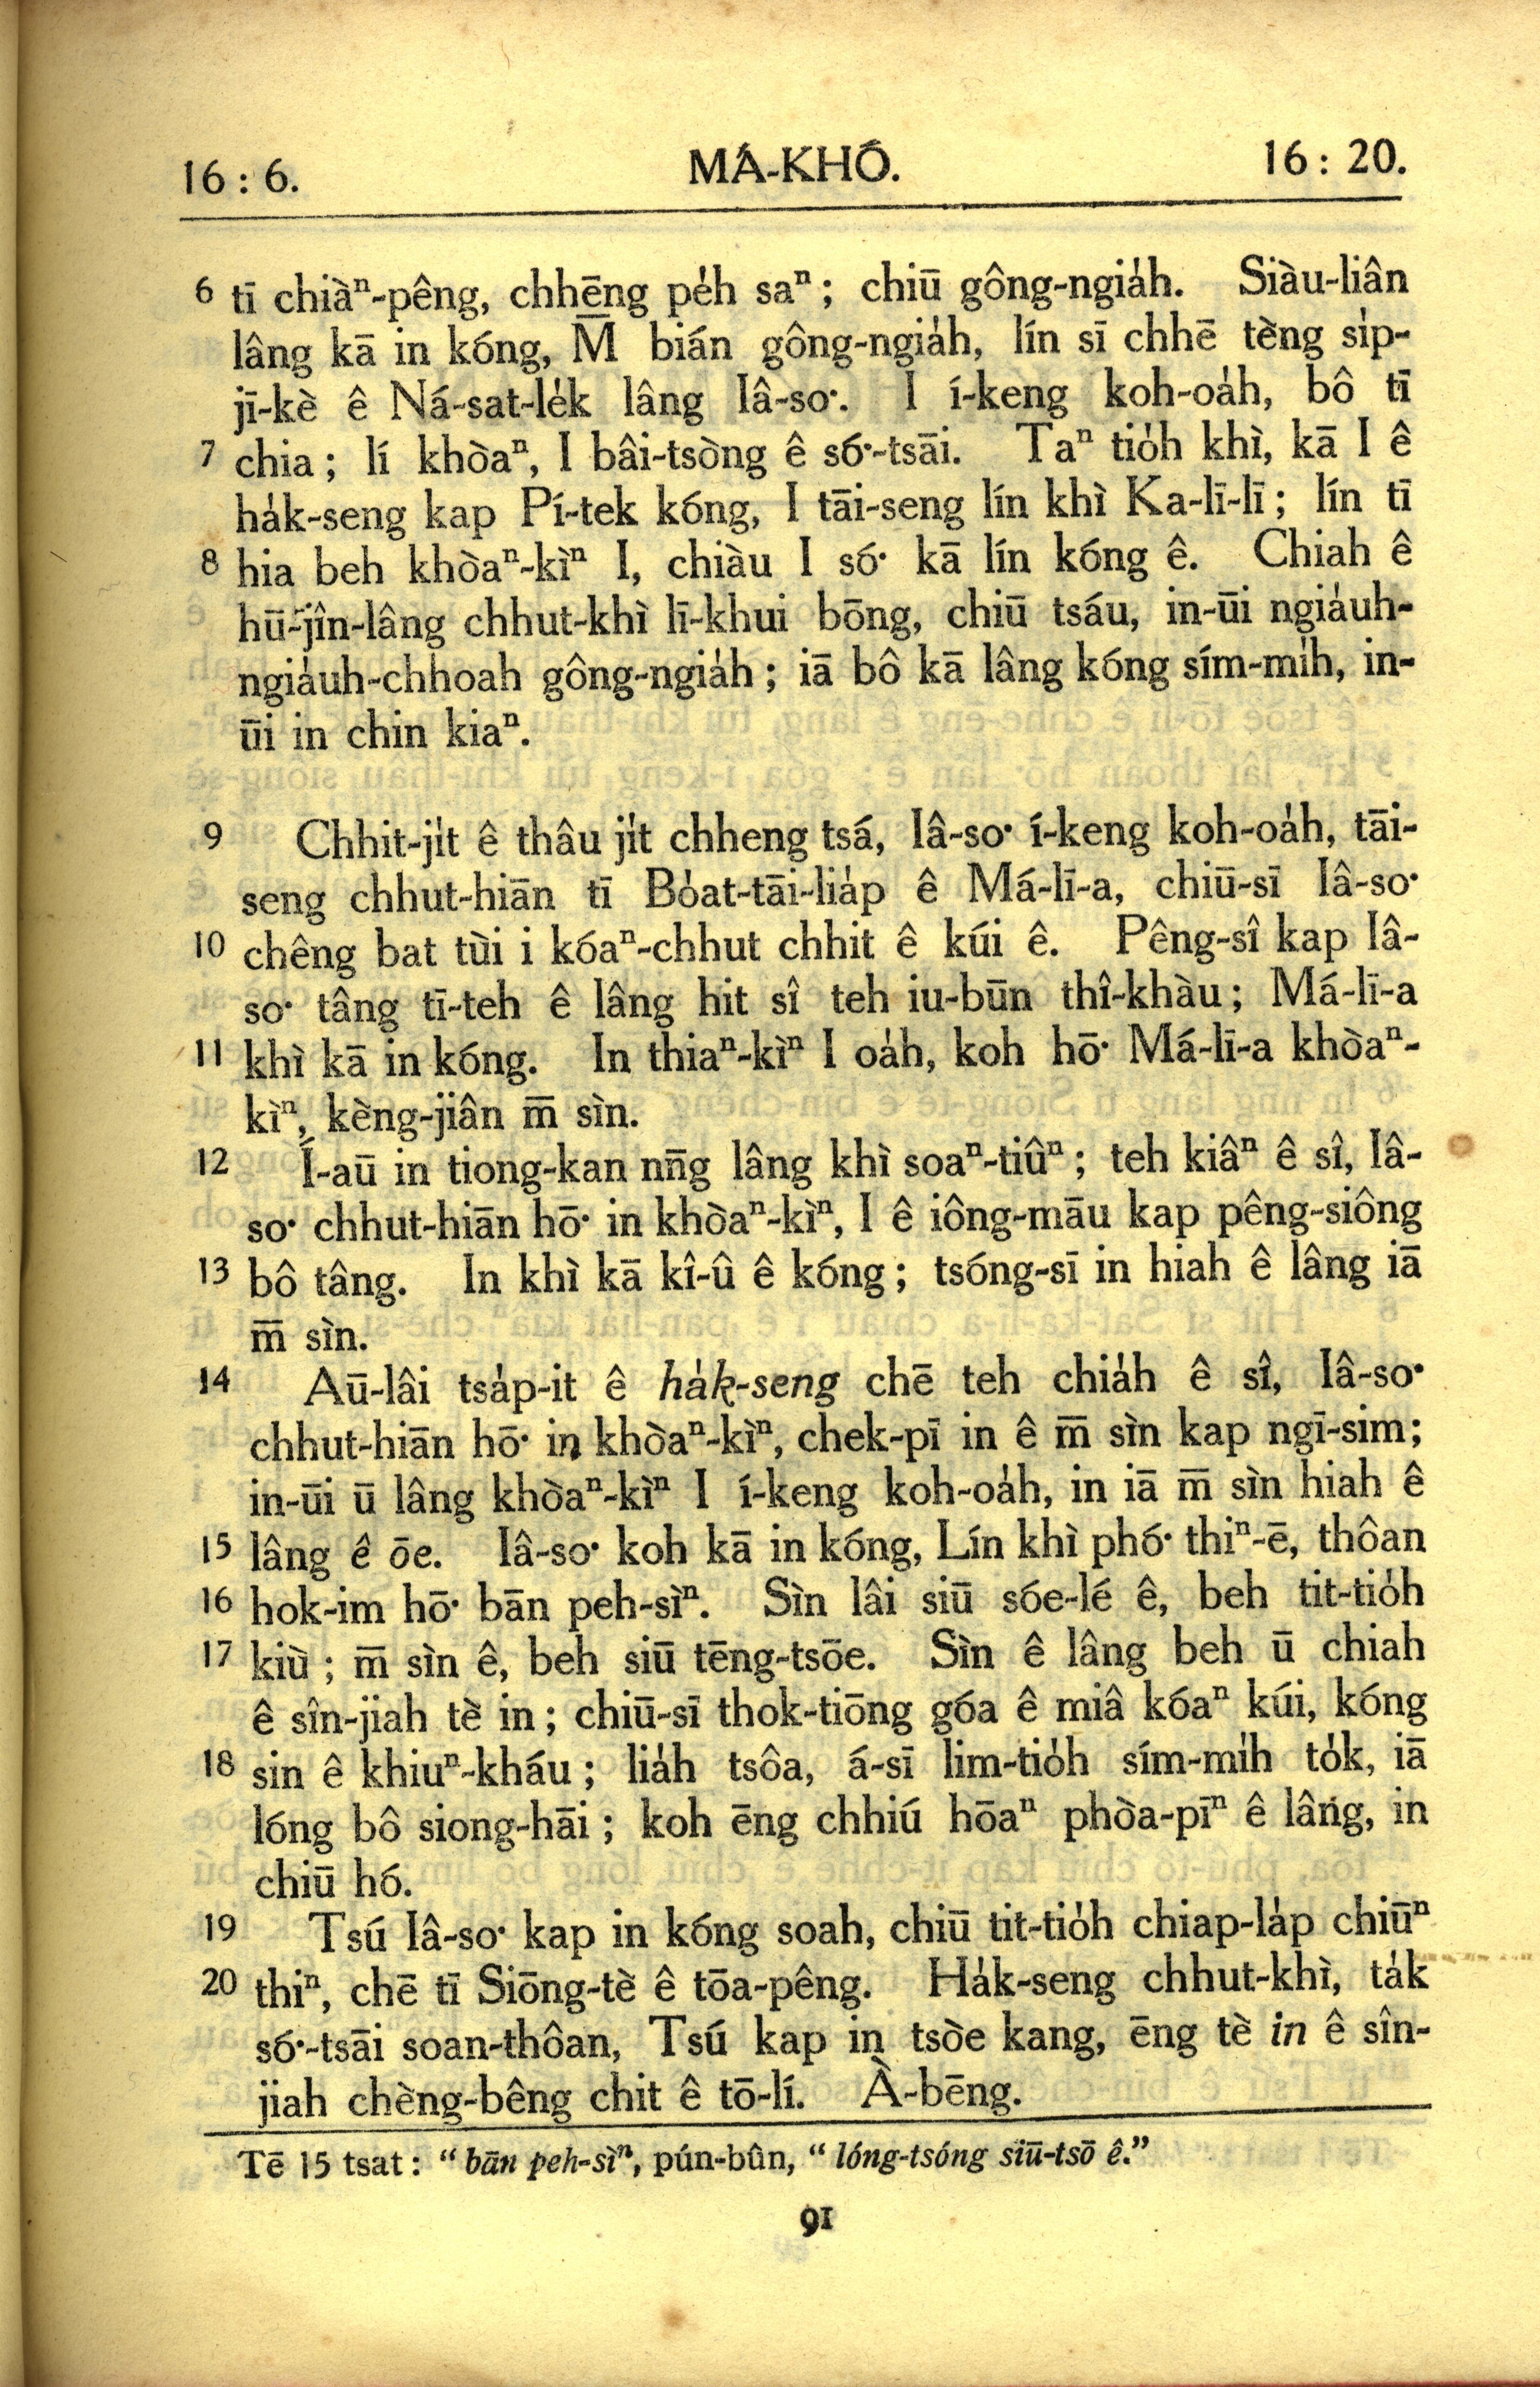 16 : 6.
MÁ-KHÓ.
16 : 20.
6 tī chiàⁿ-pêng, chhēng pe̍h saⁿ; chiū gông-ngia̍h. Siàu-liân
lâng kā in kóng, M̄ bián gông-ngia̍h, lín sī chhē tèng si̍p-
jī-kè ê Ná-sat-le̍k lâng Iâ-so͘. I í-keng koh-oa̍h, bô tī
7 chia; lí khòaⁿ, I bâi-tsòng ê só͘-tsāi. Taⁿ tio̍h khì, kā I ê
ha̍k-seng kap Pí-tek kóng, I tāi-seng lín khì Ka-lī-lī; lín tī
8 hia beh khòaⁿ-kìⁿ I, chiàu I só͘ kā lín kóng ê. Chiah ê
hū-jîn-lâng chhut-khì lī-khui bōng, chiū tsáu, in-ūi ngia̍uh-
ngia̍uh-chhoah gông-ngia̍h; iā bô kā lâng kóng sím-mi̍h, in-
ūi in chin kiaⁿ.
9 Chhit-ji̍t ê thâu ji̍t chheng tsá, Iâ-so͘ í-keng koh-oa̍h, tāi-
seng chhut-hiān tī Bo̍at-tāi-lia̍p ê Má-lī-a, chiū-sī Iâ-so͘
10 chêng bat tùi i kóaⁿ-chhut chhit ê kúi ê. Pêng-sî kap Iâ-
so͘ tâng tī-teh ê lâng hit sî teh iu-būn thî-khàu; Má-lī-a
11 khì kā in kóng. In thiaⁿ-kìⁿ I oa̍h, koh hō͘ Má-lī-a khòaⁿ-
kìⁿ, kèng-jiân m̄ sìn.
12 Í-aū in tiong-kan nn̄g lâng khì soaⁿ-tiûⁿ; teh kiâⁿ ê sî, Iâ-
so͘ chhut-hiān hō͘ in khòaⁿ-kìⁿ, I ê iông-māu kap pêng-siông
13 bô tâng. In khì kā kî-û ê kóng; tsóng-sī in hiah ê lâng iā
m̄ sìn.
14 Aū-lâi tsa̍p-it ê ha̍k-seng chē teh chia̍h ê sî, Iâ-so͘
chhut-hiān hō͘ in khòaⁿ-kìⁿ, chek-pī in ê m̄ sìn kap ngī-sim;
in-ūi ū lâng khòaⁿ-kìⁿ I í-keng koh-oa̍h, in iā m̄ sìn hiah ê
15 lâng ê ōe. Iâ-so͘ koh kā in kóng, Lín khì phó͘ thiⁿ-ē, thôan
16 hok-im hō͘ bān peh-sìⁿ. Sìn lâi siū sóe-lé ê, beh tit-tio̍h
17 kiù; m̄ sìn ê, beh siū tēng-tsōe. Sìn ê lâng beh ū chiah
ê sîn-jiah tè in; chiū-sī thok-tiōng góa ê miâ kóaⁿ kúi, kóng
18 sin ê khiuⁿ-kháu; lia̍h tsôa, á-sī lim-tio̍h sím-mi̍h to̍k, iā
lóng bô siong-hāi; koh ēng chhiú hōaⁿ phòa-pīⁿ ê lâng, in
chiū hó.
19 Tsú Iâ-so͘ kap in kóng soah, chiū tit-tio̍h chiap-la̍p chiūⁿ
20 thiⁿ, chē tī Siōng-tè ê tōa-pêng. Ha̍k-seng chhut-khì, ta̍k
só͘-tsāi soan-thôan, Tsú kap in tsòe kang, ēng tè in ê sîn-
jiah chèng-bêng chit ê tō-lí. À-bēng.
Tē 15 tsat: “ bān peh-sìⁿ, pún-bûn, “ lóng-tsóng siū-tsō ê.”
91